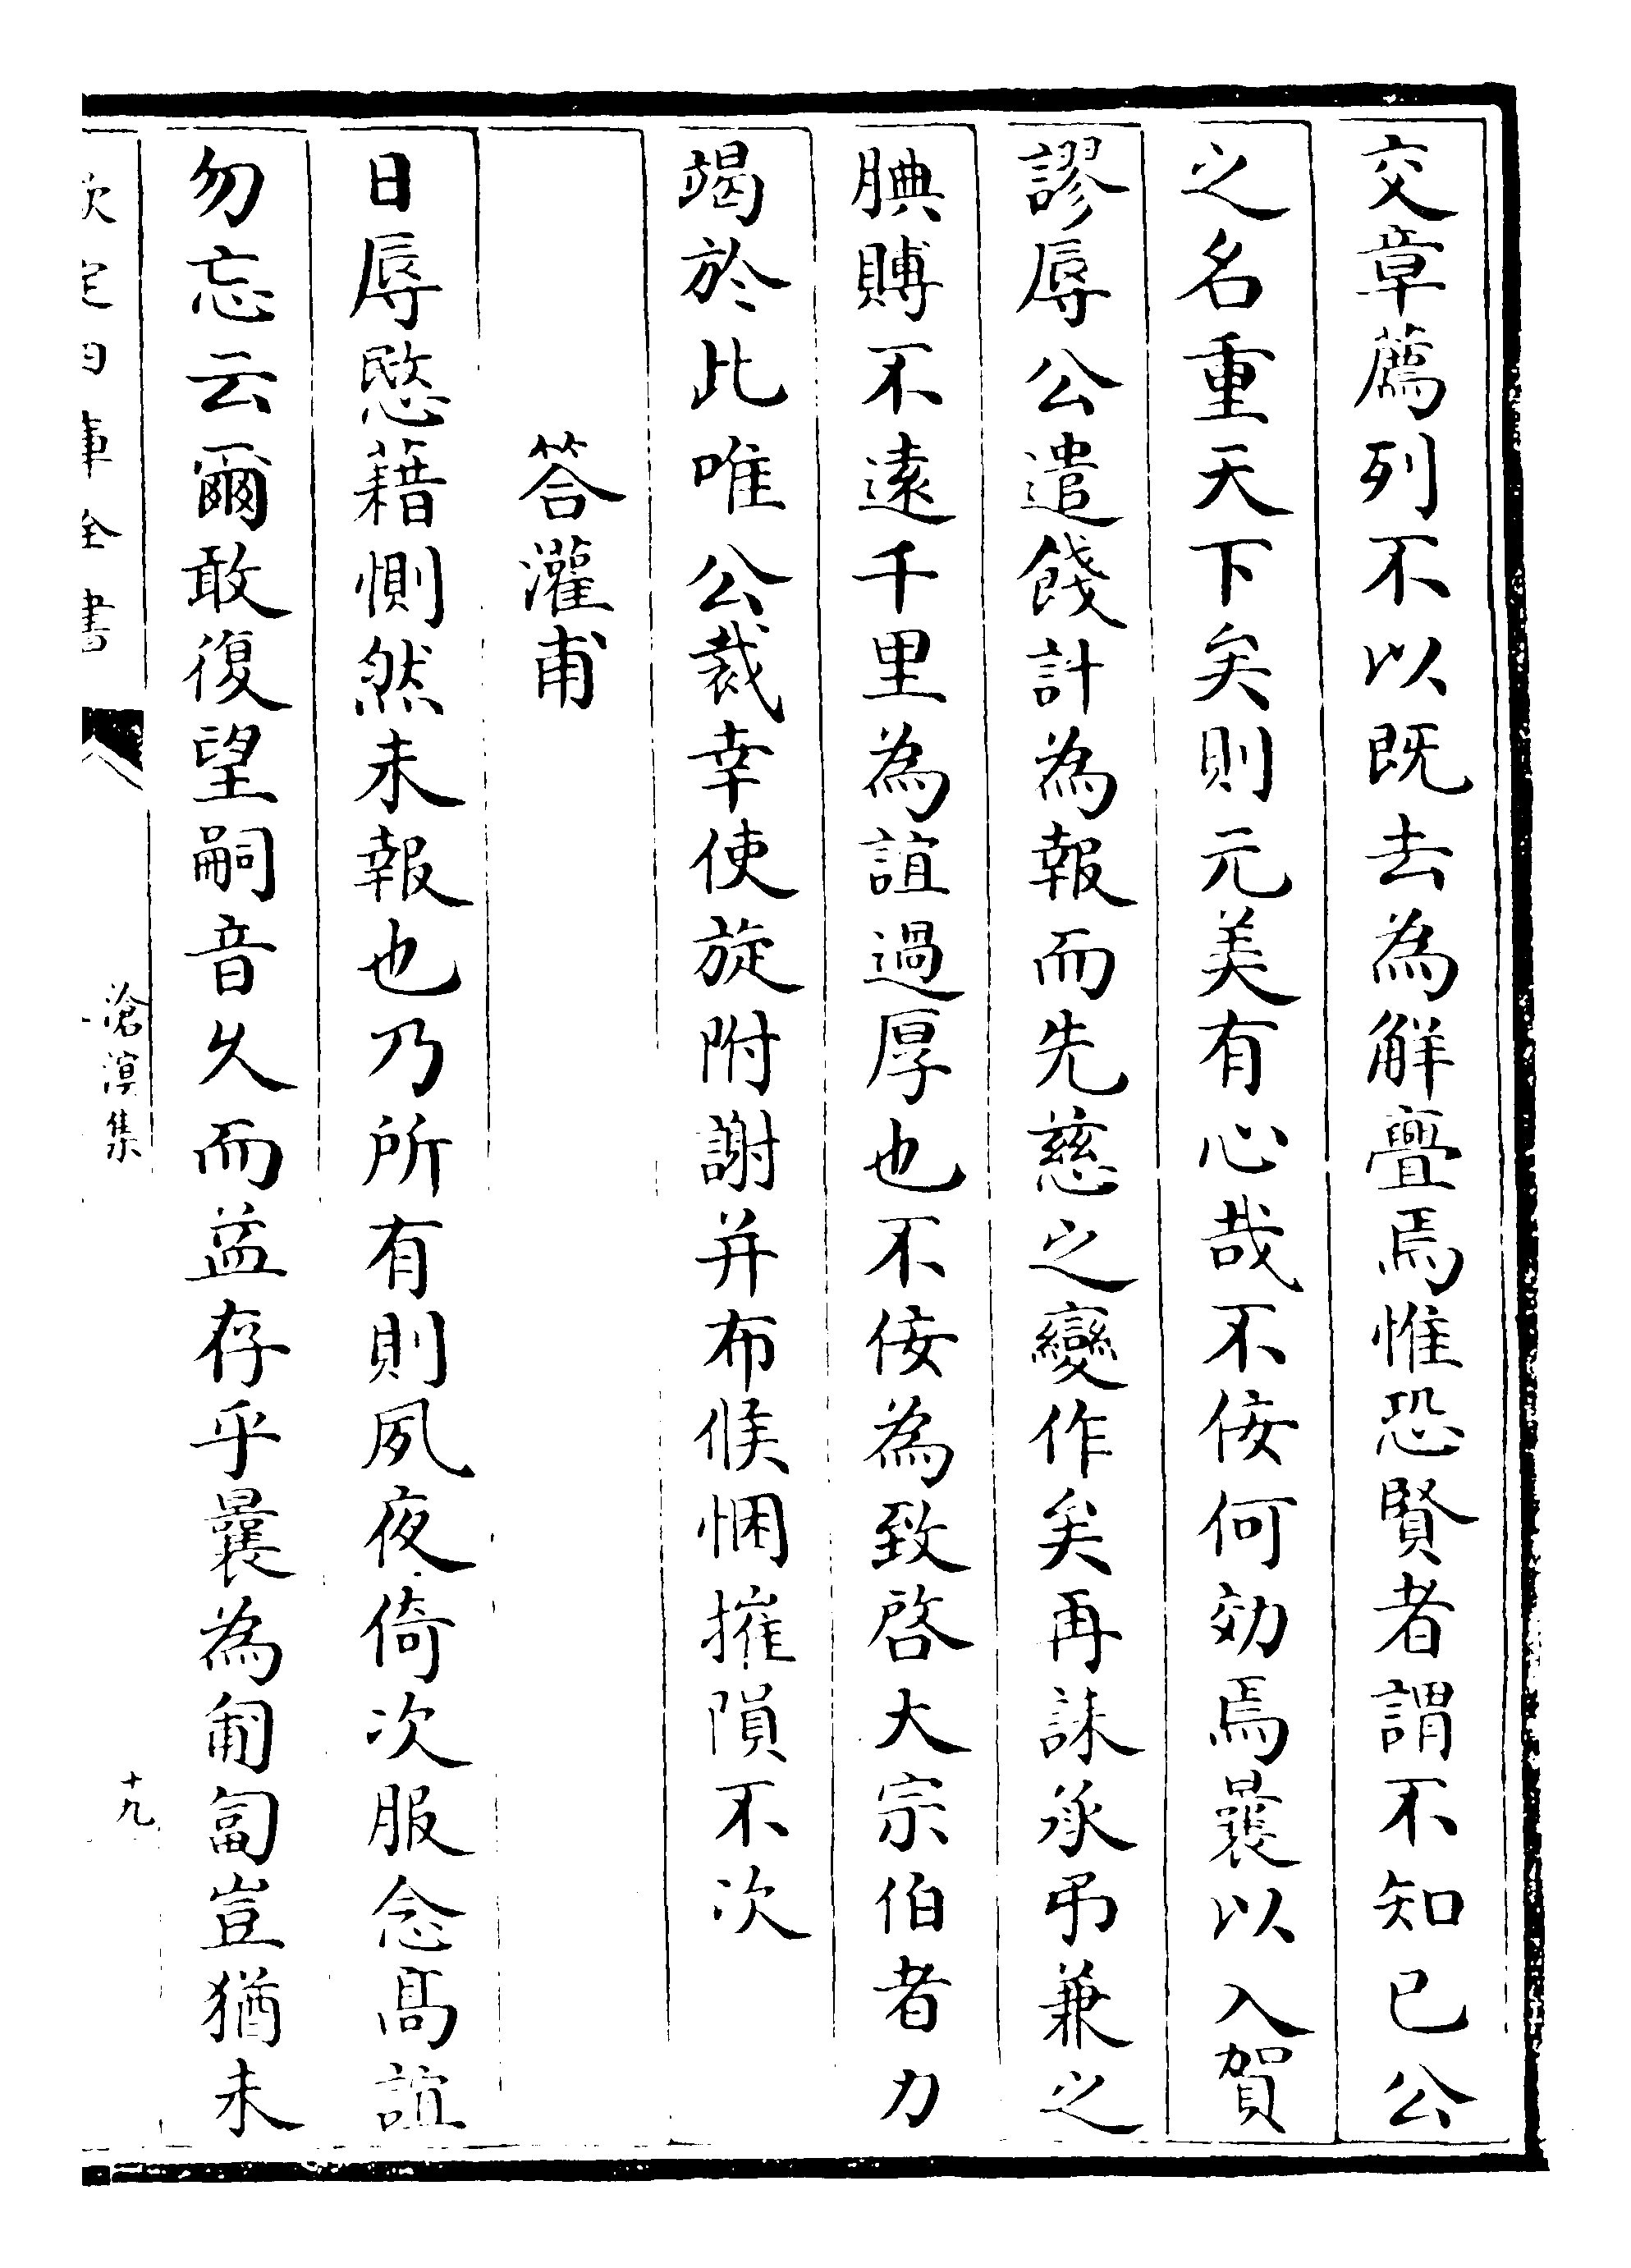 交章薦列不以既去為解亹焉惟恐賢者謂不知已公
之名重天下矣則元美有心哉不佞何効焉曩以入賀
謬辱公遣餞計為報而先慈之變作矣再誄承弔兼之
腆賻不遠千里為誼過厚也不佞為致啓大宗伯者力
竭於此唯公裁幸使旋附謝并布候悃摧隕不次
答灌甫
日辱慰藉惻然未報也乃所有則夙夜倚次服念高誼
勿忘云爾敢復望嗣音乆而益存乎曩為匍匐豈猶未
欽定四庫全書
滄溟集
十九